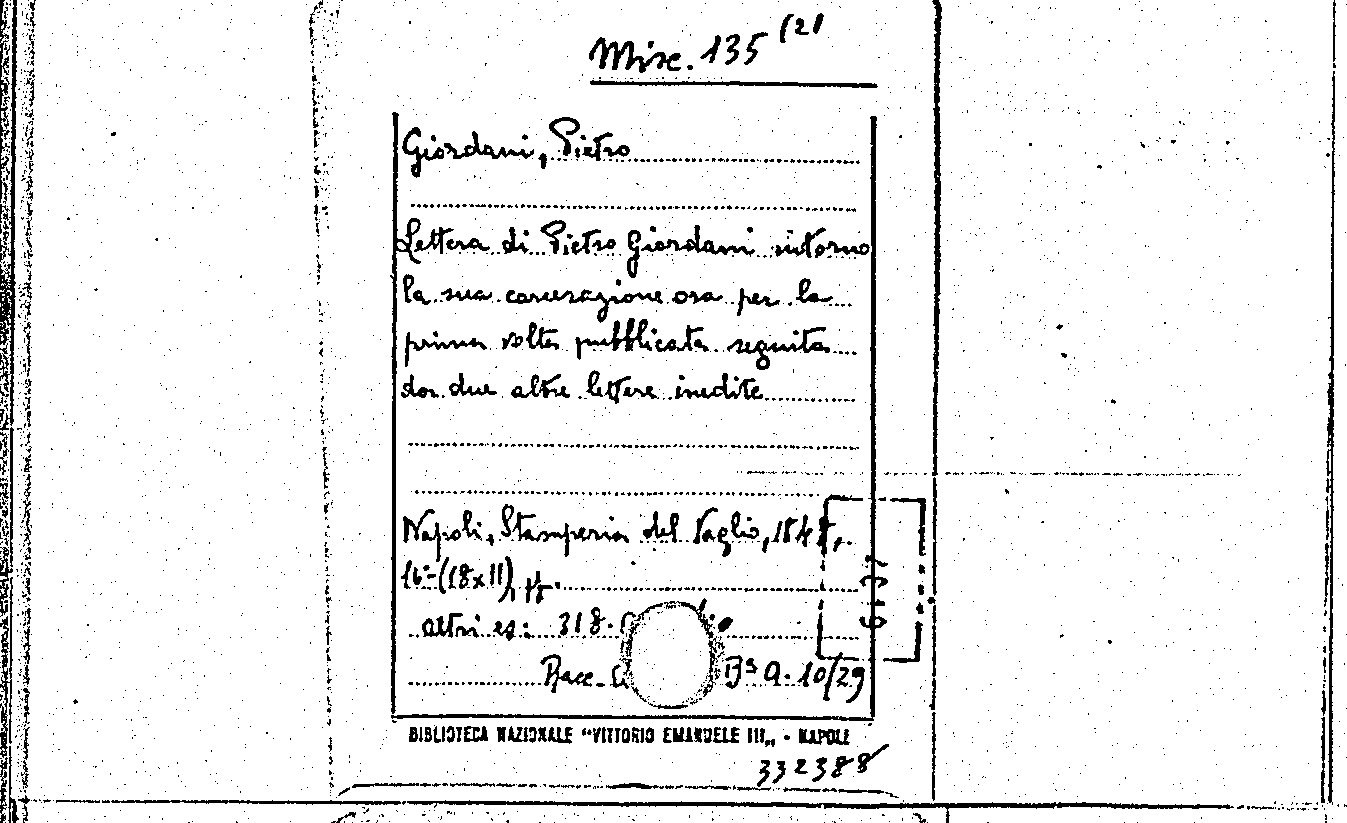 Misc. 135 (2)
Giordani, Pietro
Lettera di Pietro Giordani intorno
la sua carcerazione ora per la
prima volta pubblicata seguita
da due altre lettere inedite
Napoli, Stamperia del Vaglio,
16°-(18x11),
altri es: 318.
Race. Bs a. 10/29
BIBLIOTECA NAZIONALE "VITTORIO EMANUELE III„ - NAPOLI
332388